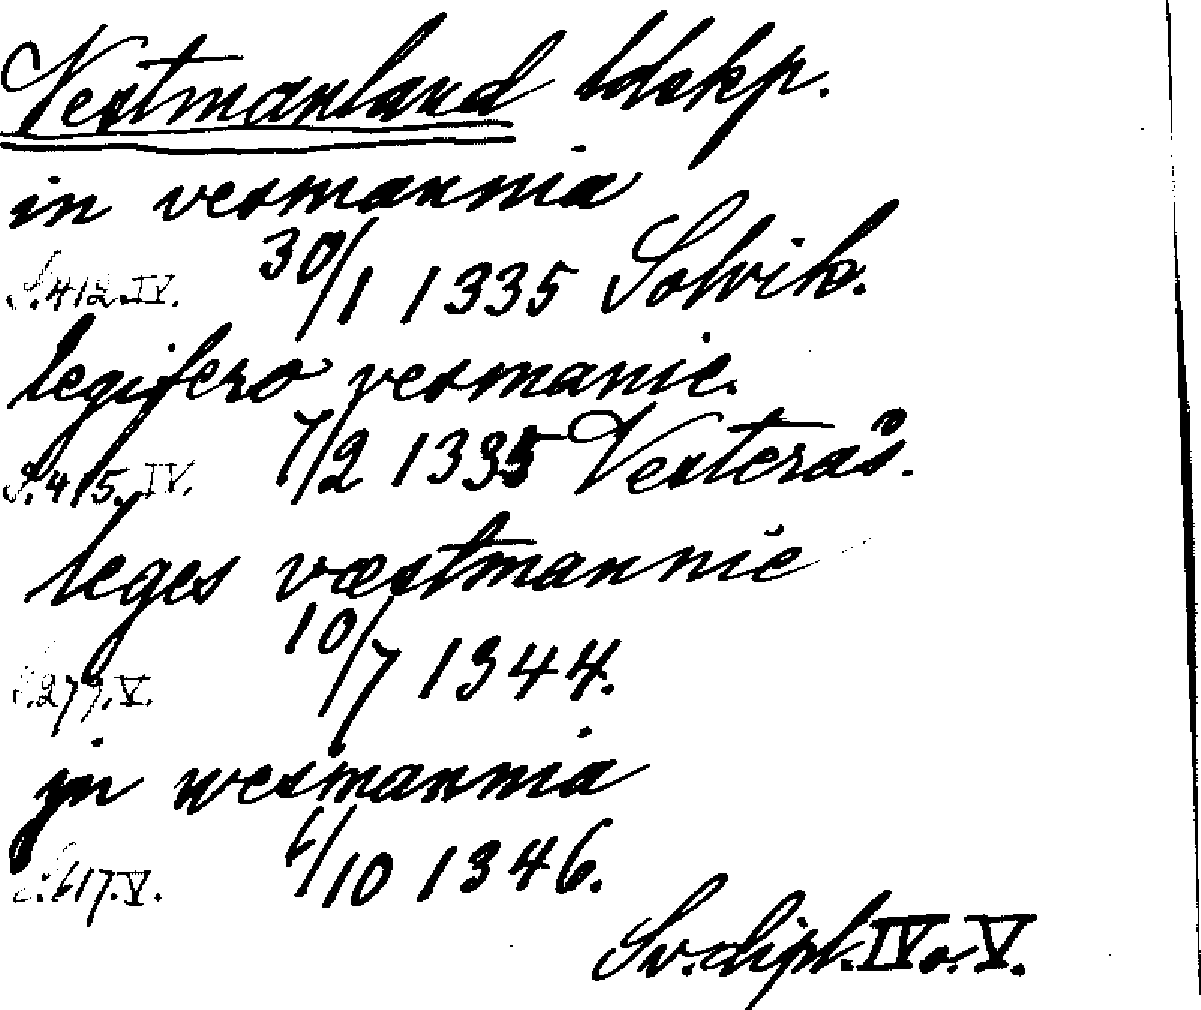 Vestmanland ldskp.
in vesmannia
S. 412. IV. 30/1 1335 Solvik.
legifero vesmanie.
S. 415. IV. 7/2 1335 Vesterås.
leges væstmannie
S. 279. V. 10/7 1344.
jn wesmannia
S. 617. V. 6/10 1346.
Sv. dipl. IV o. V.